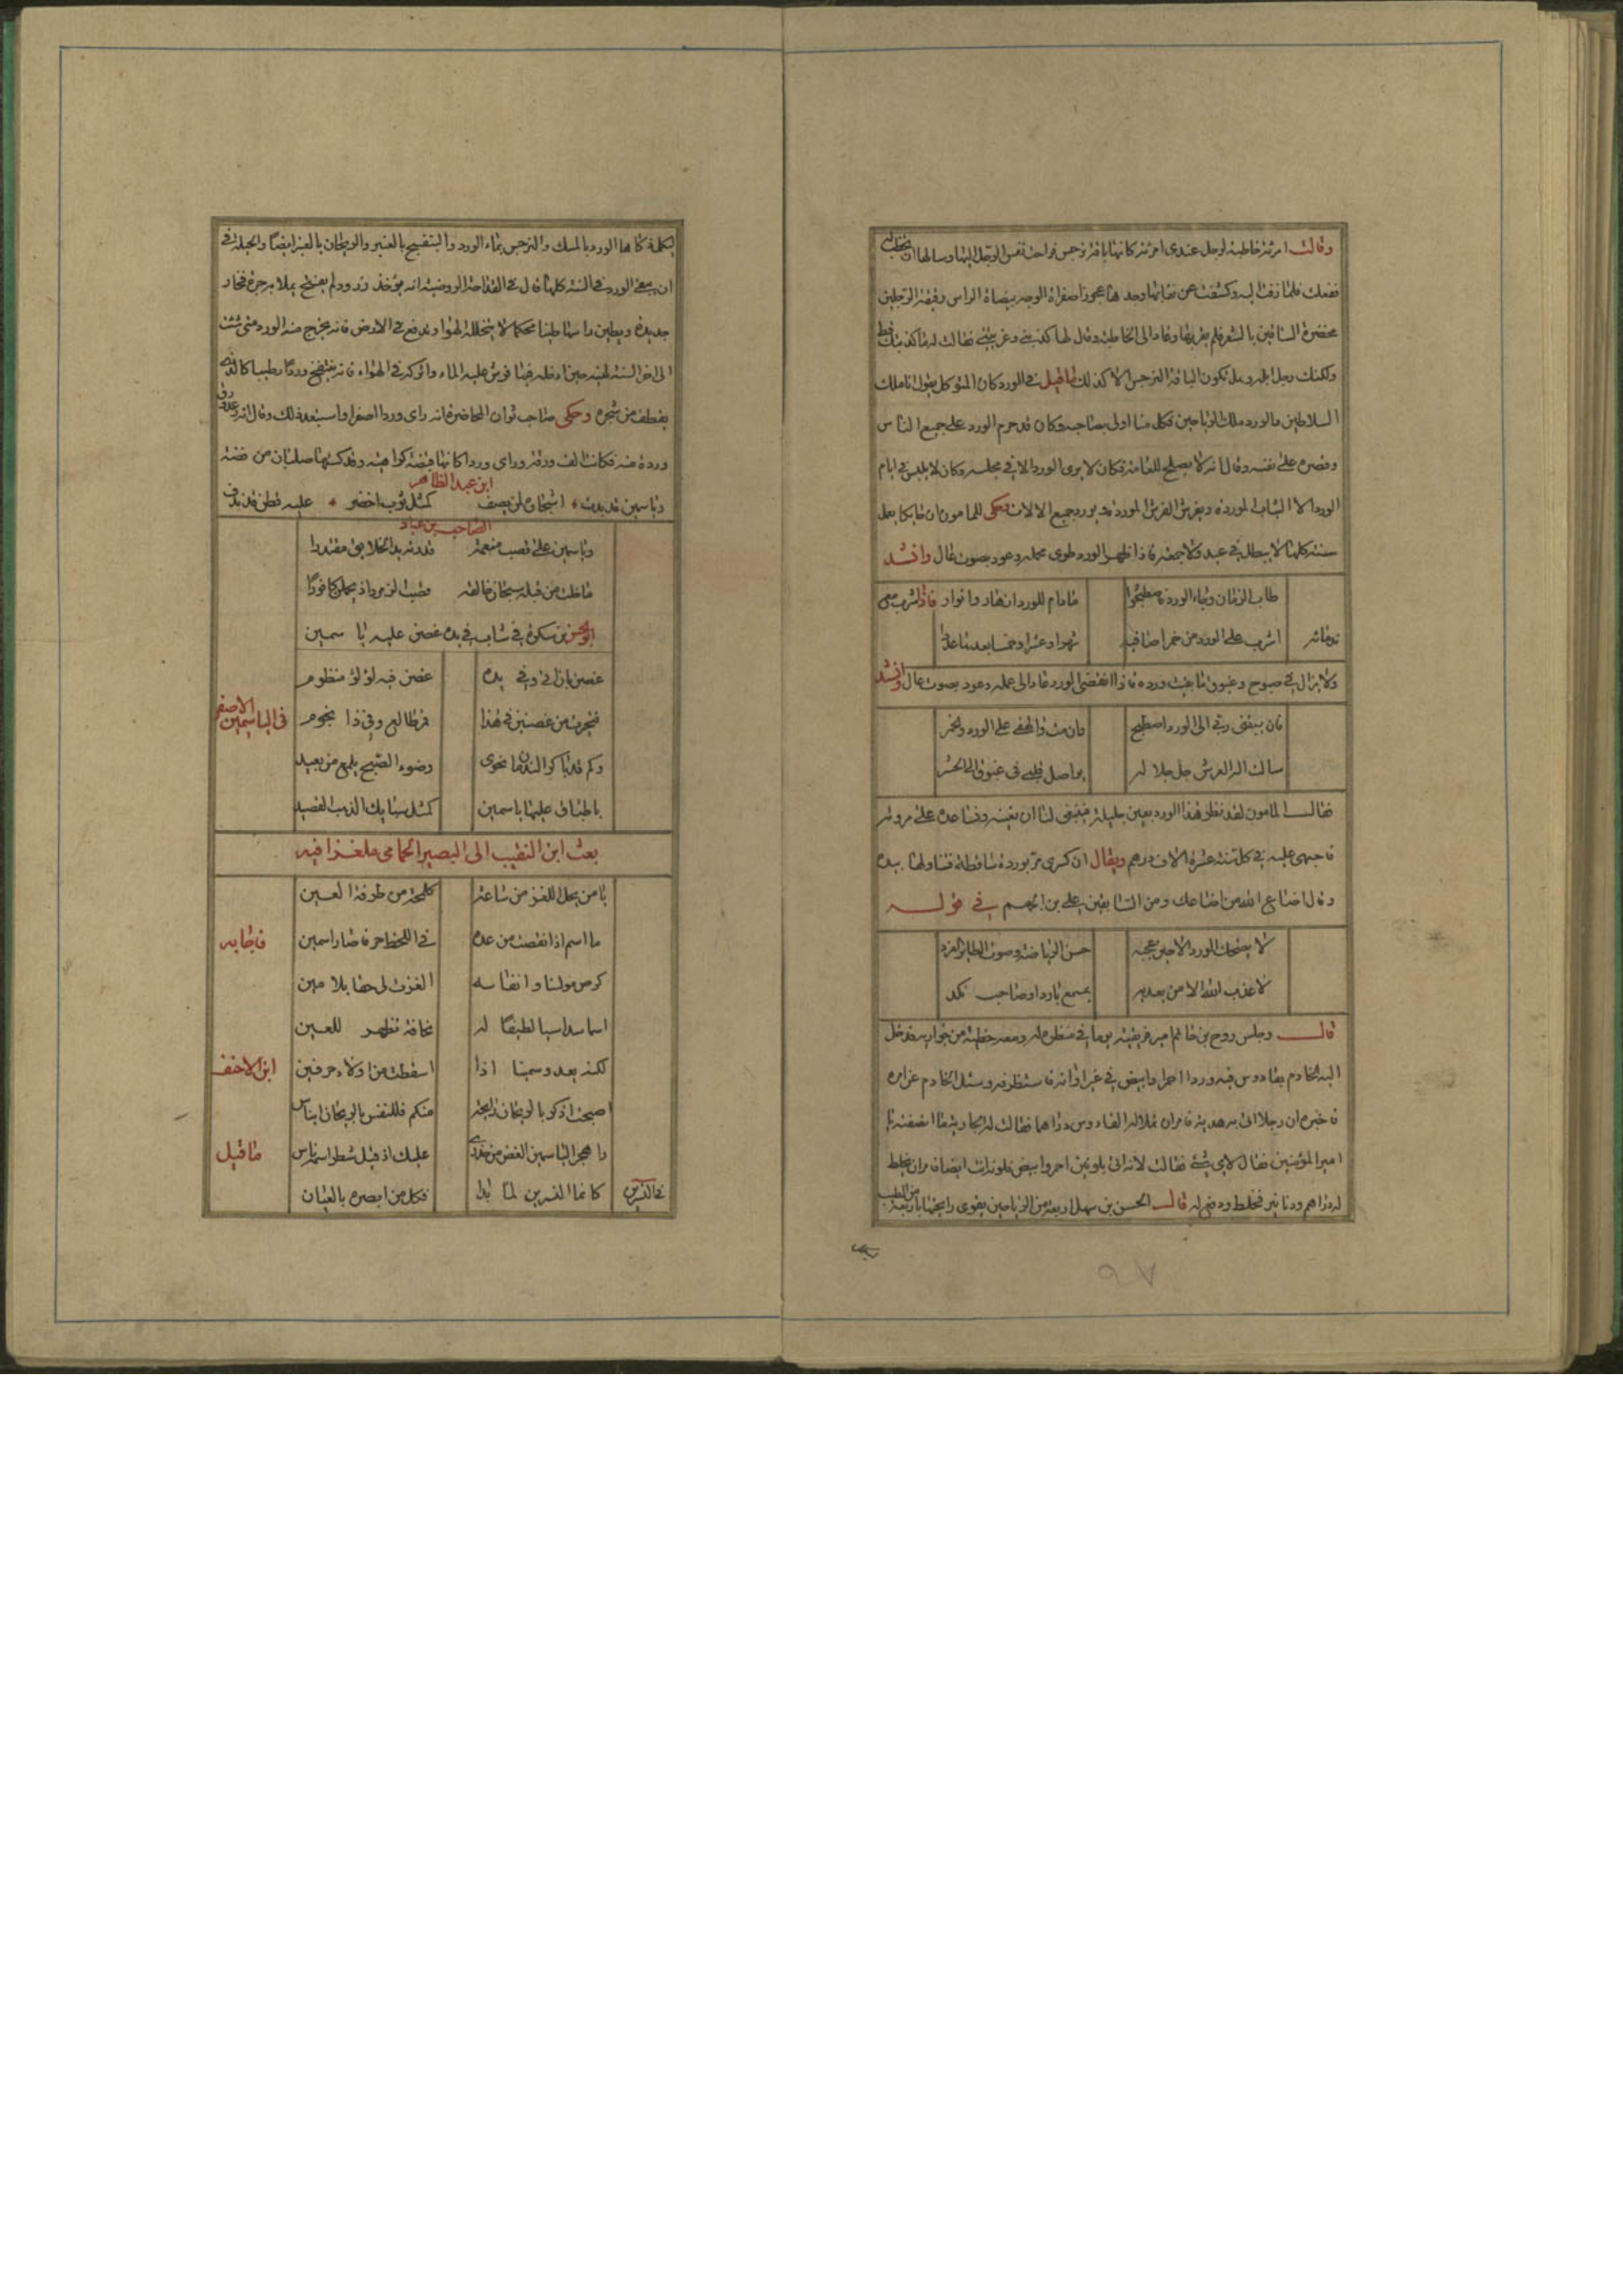 وقالت امرئة خاطبة لرجل عندى امرئة كانها باقة نرجس فراحت نفس الرجل اليها وسالها ان يخطبها
ففعلت فلما زفت اليه وكشفت عن نقابها وجدها عجوزا صفراء الوجه بيضاء الراس دقيقة الرجلين
مخضرة الساقين بالشعر فلم يقربها وعاد الى الخاطبة وقال لها كذبتنى وغريتنى فقالت له ما كذبتك قط
ولكنك رجل ابله وهل تكون الباقة النرجس الا كذلك ما قيل فى الورد كان المتوكل يقول انا ملك
السلاطين والورد ملك الرياحين فكل منا اولى بصاحبه وكان قد حرم الورد على جميع الناس
وقصره على نفسه وقال انه لا يصلح للعامة فكان لا يرى الورد الا فى مجلسه وكان لا يلبس فى ايام
الورد الا الثياب الموردة ويفرش الفرش الموردة ويورد جميع الالات وحكى للمامون ان حايكا يعمل
سنته كلها لا يبطل فى عيد ولا جمعة فاذا ظهر الورد طوى عمله وعود بصوت عال وانشد
طاب الزمان وجاء الورد فاصطبحوا ما دام للورد ازهار وانوار فاذا شرب مع
ندمائه اشرب على الورد من خمرا صافية شهرا وعشرا وخمسا بعدها عددا
ولا يزال فى صبوح وغبوق ما بقيت وردة فاذا انقضى الورد عاد الى عمله وعود بصوت عال وانشد
فان يبقنى ربى الى الورد اصطبح وان مت والهفى على الورد والخمر
سالت اله العرش جل جلاله يواصل قلبى فى غبوق الى الحشر
فقال المامون لقد نظر هذا الورد بعين جليلة فينبغى لنا ان نعينه ونساعده على مروته
فاجرى عليه فى كل سنة عشرة الاف درهم ويقال ان كسرى مر بوردة ساقطة فتناولها بيده
وقال اضاع الله من اضاعك ومن السابقين على بن الجهم فى قوله
لا يضحك الورد الا حين يعجبه حسن الرياض وصوت الطاير الغرد
لا عذب الله الا من يعذبه بمسمع بارد او صاحب نكد
قال وجلس روح بن حاتم امير افريقية يوما فى منظرة له ومعه حظية من جواريه فدخل
اليه الخادم بقادوس فيه وردا احمر وابيض فى غير اوانه فاستظرفه وسئل الخادم عن امره
فاخبره ان رجلا اتى به هدية فامر ان يملا له القادوس دراهما فقالت له الجارية ما انصفته يا
امير المؤمنين فقال لاى شئ فقالت لانه اتى بلونين احمر وابيض فلون انت ايضا فامر ان يخلط
له دراهم ودنانير فخلط ودفع له قال الحسن بن سهل اربعة من الرياحين يقوى رايحتها باربعة من الطيب
ليكمل
٩٧
ليكملة كاها الورد بالمسك والنرجس بماء الورد والبنفسج بالعنبر والريحان بالعنبر ايضا والحيلة فى
ان يبقى الورد فى السنة كلها قال فى الفلاحة الرومية انه يؤخذ زر ورد لم يفتح يملا به جرة فخار
جديدة ويطين راسها طينا محكما لا يتخلله الهوا وتدفع فى الارض فانه يخرج منه الورد متى شئت
الى اخر السنة لهيئة حين ادخله فيها فرش عليه الماء واتركه فى الهواء فانه يتفتح وردا رطيبا كالذى
يقطف من شجره وحكى صاحب نوان المحاضر فانه راى وردا اصفر واستبعد ذلك وقال انه عد ورق
وردة منه فكانت الف ورقة وراى وردا كانها فضة كراهية وقد كتبها صلبان من فضة
ابن عبد الظاهر
وياسمين قد بدت اشجاره لمن يصف كمثل ثوب اخضر عليه قطن قد ندف
الصاحب بن عباد
وياسمين على قضب منعمة قدرته بدا لخلايق مقتدرا
ما ظلت من قبله سبحان خالقه قضب الزمرد اذ يحملن كافورا
ابو الحسن بن سكرة فى شاب فى يده غصن عليه ياسمين
غصن بان اتى وفى يده غصن فيه لؤلؤ منظوم
فتحيرت بين غصنين فى هذا قمر طالع وفى ذا نجوم
فى الياسمين الاصفر
وكم قد باكر الندمان نحوى وضوء الصبح يلمع من بعيد
باطباق عليها ياسمين كمثل سبايك الذهب الفصيد
بعث ابن النقيب الى البصير الحمامى ملغزا فيه
يا من يحل اللغز من ساعته كلمحة من طرفة العين
ما اسم اذا نقصت من عده فى اللحظ حرفا صار اسمين
فاجابه
كرمى مولنا وانفاسه الغزت لى حقا بلا مين
اسما سداسيا لطيفا له نحافة تظهر للعين
لكنه يعد وسمينا اذا اسقطت من اولاه حرفين
ابن الاحنف
اصبحت اذكر بالريحان رايحة منكم فللنفس بالريحان ايناس
واهجر الياسمين الغض من حذرى عليك اذ قيل شطر اسمه ياس
ما قيل
فى النسرين كانما النسرين لما بدا فكل من ابصره بالعيان